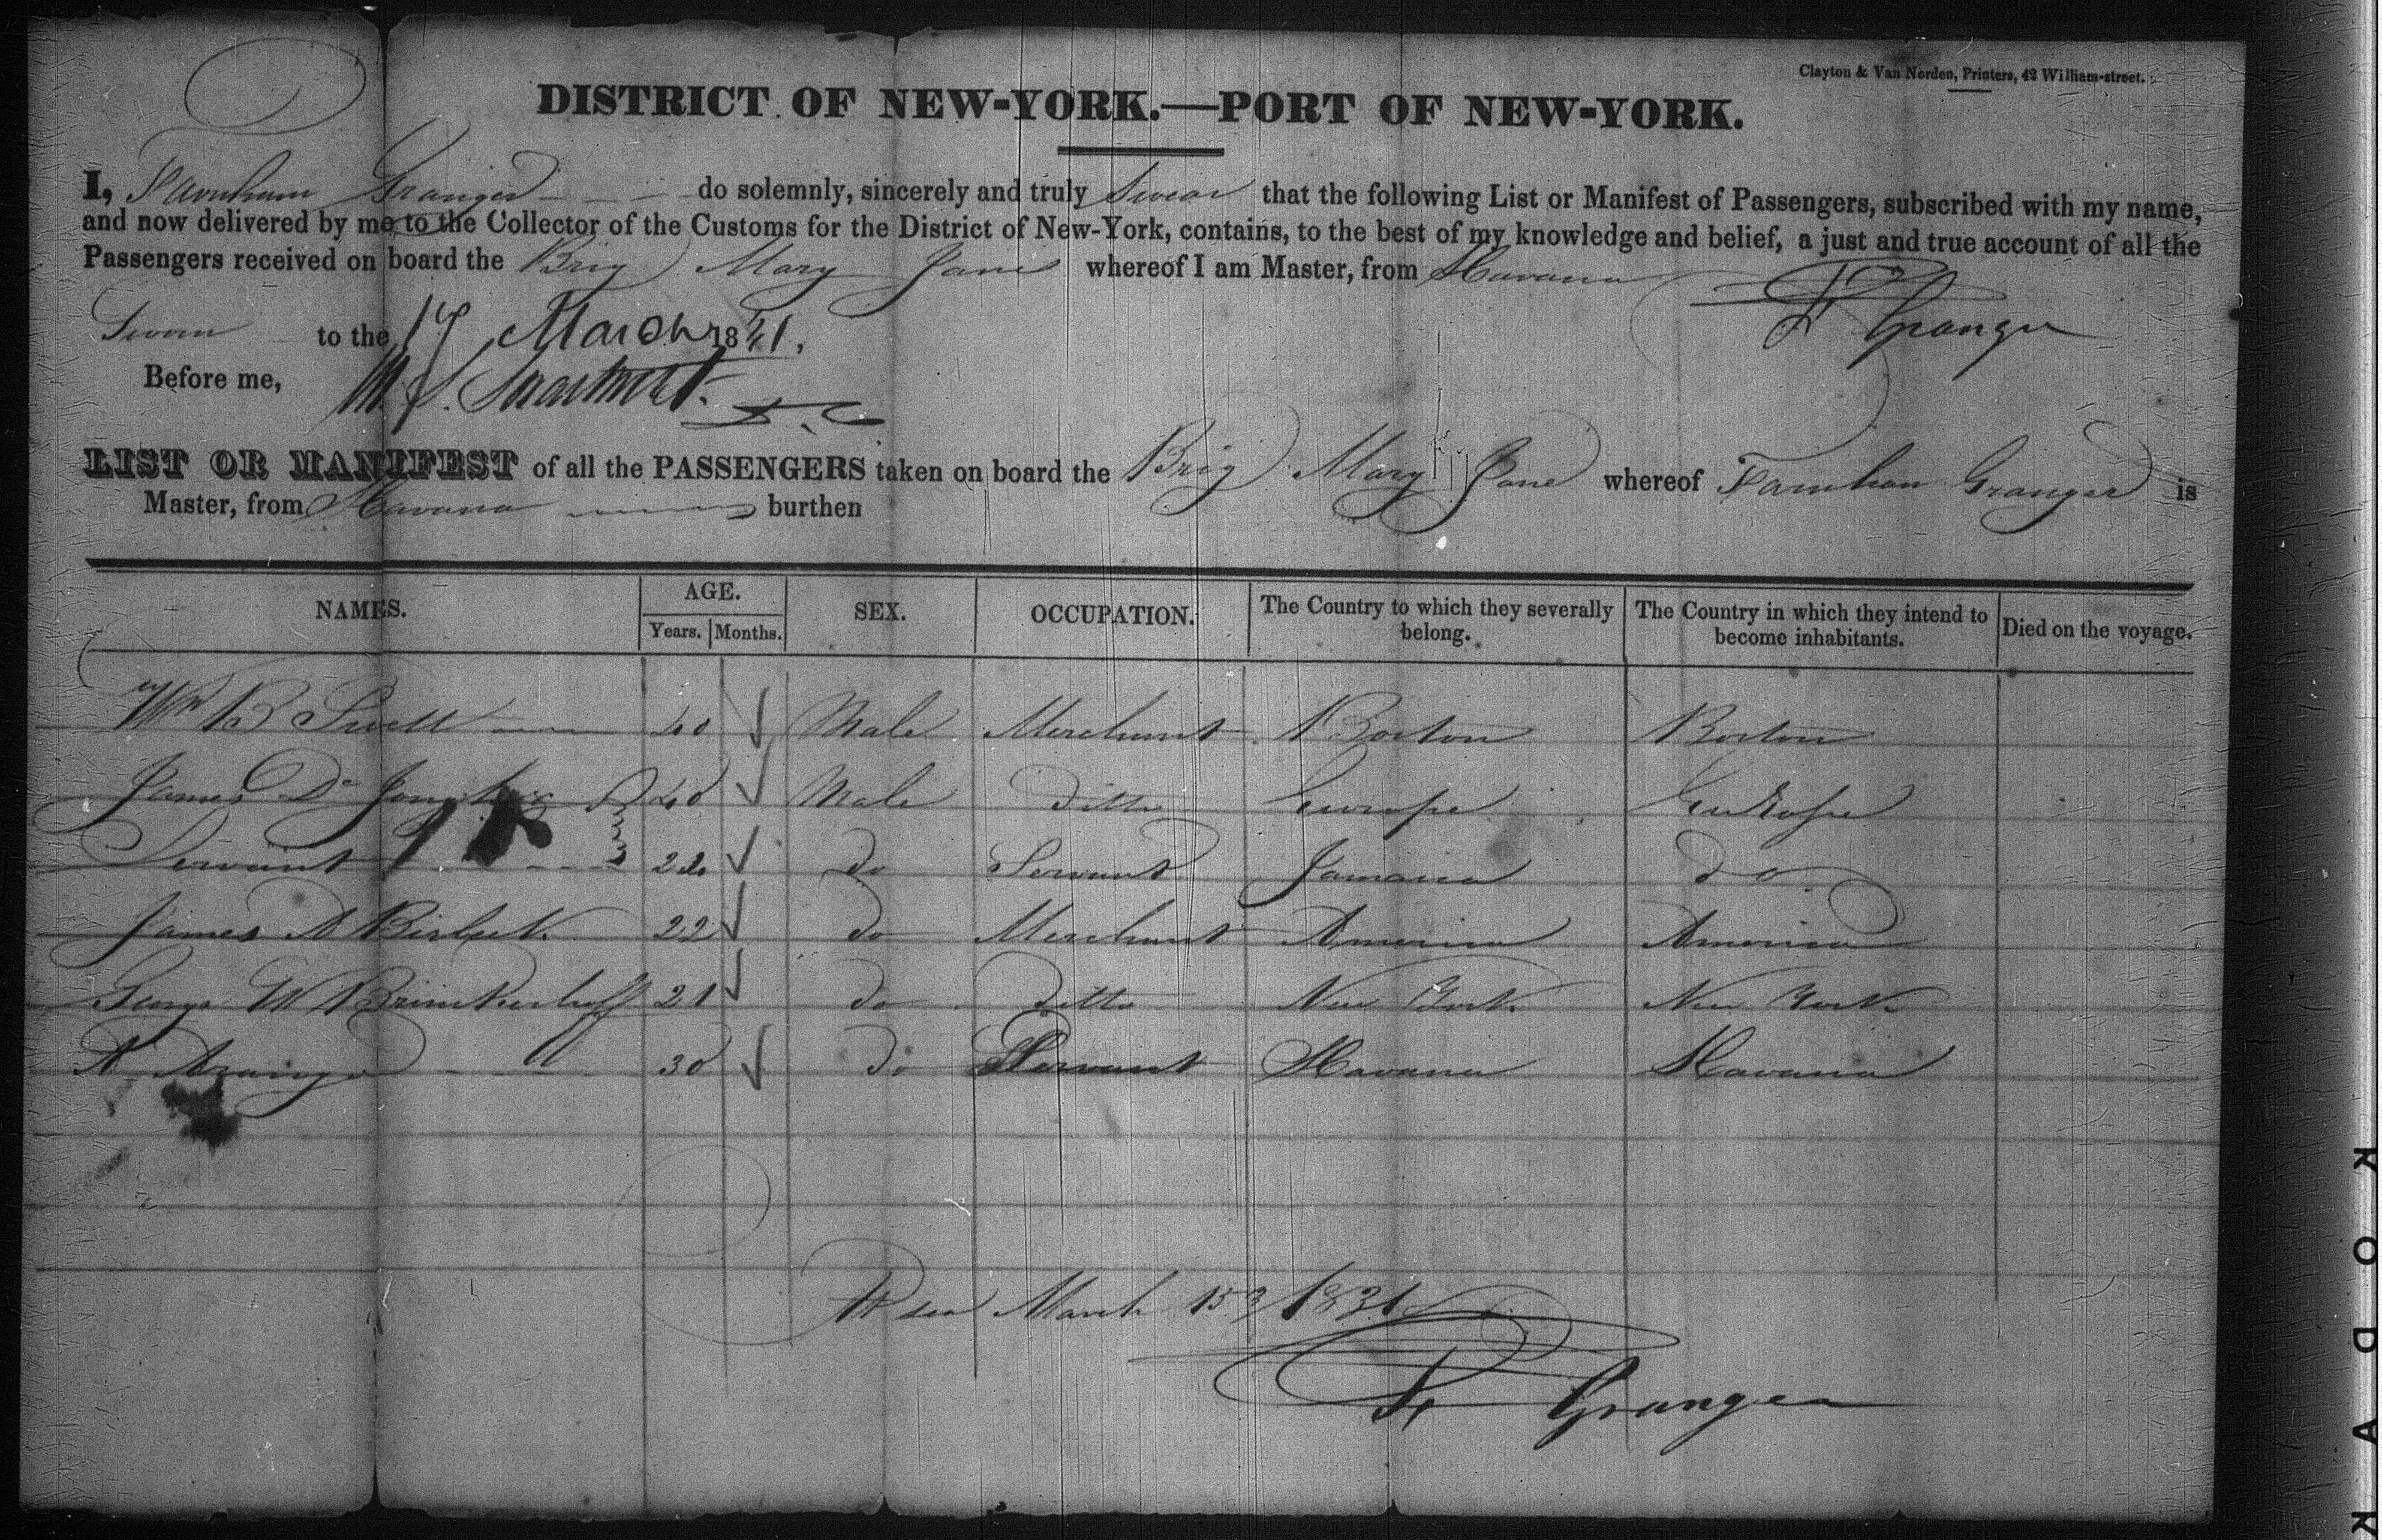 Clayton & Van Norden, Printers, 42 William-street.
DISTRICT OF NEW-YORK.—PORT OF NEW-YORK.
I, Farnham Granger do solemnly, sincerely and truly Swear that the following List or Manifest of Passengers, subscribed with my name,
and now delivered by me to the Collector of the Customs for the District of New-York, contains, to the best of my knowledge and belief, a just and true account of all the
Passengers received on board the Brig Mary Jane whereof I am Master, from Havana
Sworn to the 17 March 1831.
F Granger
Before me,
LIST OR MANIFEST of all the PASSENGERS taken on board the Brig Mary Jane whereof Farnham Granger is
Master, from Havana burthen
NAMES. AGE. SEX. OCCUPATION. The Country to which they severally belong. The Country in which they intend to become inhabitants. Died on the voyage.
Years. Months.
Wm B Swett 40 Male Merchant Boston Boston
James D 40 Male Ditto Europe Europe
Servant 24 do Servant Jamaica do
James A 22 do Merchant America America
George W Brinkerhoff 21 do Ditto New York New York
A Arango 30 do Servant Havana Havana
At sea March 15 1831
F Granger
KODAK